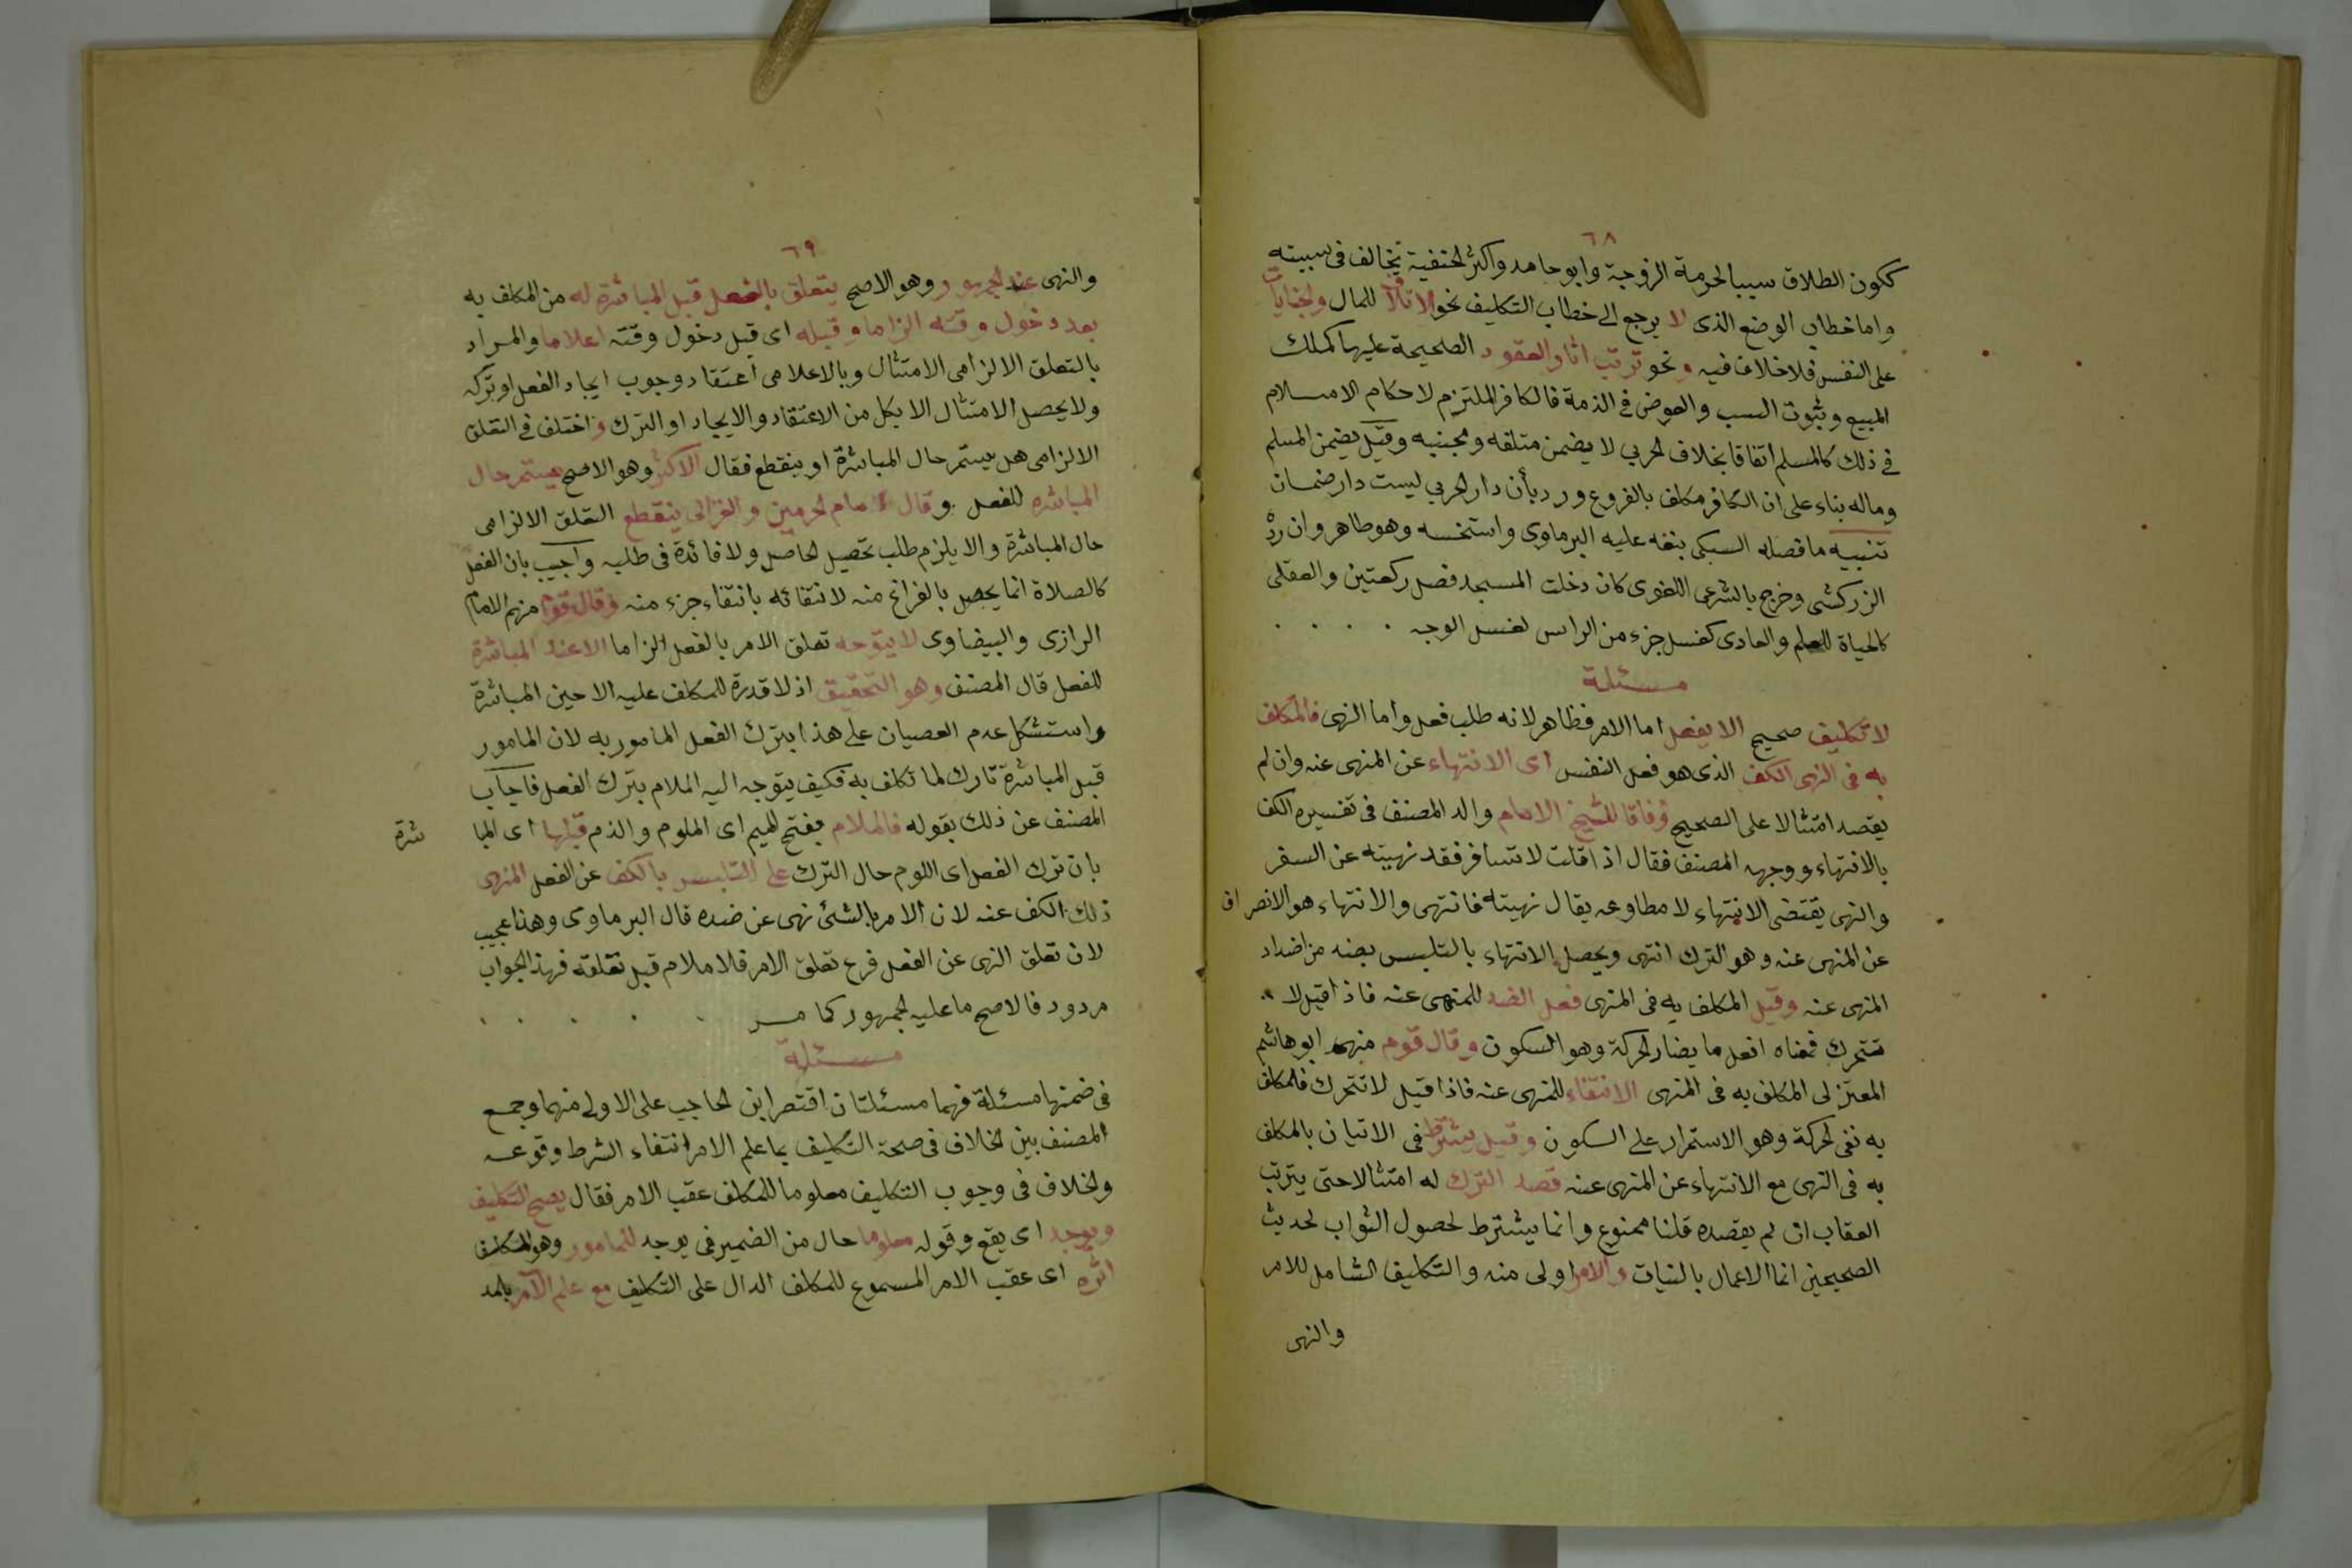 ٦٨
ككون الطلاق سببا لحرمة الزوجة وابو حامد واكثر الحنفية يخالف فى سببيته
واما خطاب الوضع الذى لا يرجع الى خطاب التكليف نحو الاتلاف للمال والجنايات
على النفس فلا خلاف فيه ونحو ترتب اثار العقود الصحيحة عليها كملك
المبيع وثبوت السبب والعوض فى الذمة فالكافر الملتزم لاحكام الاسلام
فى ذلك كالمسلم اتفاقا بخلاف الحربي لا يضمن متلفه ومجنيه وقيل يضمن المسلم
وماله بناء على ان الكافر مكلف بالفروع ورد بأن دار الحربي ليست دار ضمان
تنبيه ما فصله السبكى بنعه عليه البرماوى واستحسنه وهو ظاهر وان ردّ
الزركشى وخرج بالشرعى اللغوى كان دخلت المسجد فصل ركعتين والعقلى
كالحياة للعلم والعادى كغسل جزء من الراس لغسل الوجه . . . .
مسئلة
لا تكليف صحيح الا بفعل اما الامر فظاهر لانه طلب فعل واما النهى فالمكلف
به فى النهى الكف الذى هو فعل النفس اى الانتهاء عن المنهى عنه وان لم
يقصد امتثالا على الصحيح وفاقا للشيخ الامام والد المصنف فى تفسيره الكف
بالانتهاء ووجهه المصنف فقال اذا قلت لا تسافر فقد نهيته عن السفر
والنهى يقتضى الانتهاء لا مطاوعه يقال نهيته فانتهى والانتهاء هو الانصراف
عن المنهى عنه وهو الترك انتهى ويحصل الانتهاء بالتلبس بضد من اضداد
المنهى عنه وقيل المكلف به فى المنهى فعل الضد للمنهى عنه فاذا قيل لا
تتحرك فمعناه افعل ما يضاد الحركة وهو السكون وقال قوم منهم ابو هاشم
المعتزلى المكلف به فى المنهى الانتفاء للمنهى عنه فاذا قيل لا تتحرك فالمكلف
به نفى الحركة وهو الاستمرار على السكون وقيل يشترط فى الاتيان بالمكلف
به فى النهى مع الانتهاء عن المنهى عنه قصد الترك له امتثالا حتى يترتب
العقاب ان لم يقصده قلنا ممنوع وانما يشترط لحصول الثواب لحديث
الصحيحين انما الاعمال بالنيات والامر اولى منه والتكليف الشامل للامر
والنهى
٦٩
والنهى عند الجمهور وهو الاصح يتعلق بالفعل قبل المباشرة له من المكلف به
بعد دخول وقته الزاما وقبله اى قبل دخول وقته اعلاما والمراد
بالتعلق الالزامى الامتثال وبالاعلامى اعتقاد وجوب ايجاد الفعل او تركه
ولا يحصل الامتثال الا بكل من الاعتقاد والايجاد او الترك واختلف فى التعلق
الالزامى هل يستمر حال المباشرة او ينقطع فقال الاكثر وهو الاصح يستمر حال
المباشره للفعل وقال امام الحرمين والغزالى ينقطع التعلق الالزامى
حال المباشرة والا يلزم طلب تحصيل الحاصل ولا فائدة فى طلبه واجيب بان الفعل
كالصلاة انما يحصل بالفراغ منه لانتفائه بانتفاء جزء منه وقال قوم منهم الامام
الرازى والبيضاوى لا يتوجه تعلق الامر بالفعل الزاما الا عند المباشرة
للفعل قال المصنف وهو التحقيق اذ لا قدرة للمكلف عليه الا حين المباشرة
واستشكل عدم العصيان على هذا بترك الفعل المامور به لان المامور
قبل المباشرة تارك لما تكلف به فكيف يتوجه اليه الملام بترك الفعل فاجاب
المصنف عن ذلك بقوله فالملام بفتح الميم اى الملوم والذم قبلها اى المبا شرة
بان ترك الفعل اى اللوم حال الترك على التلبس بالكف عن الفعل المنهى
ذلك الكف عنه لان الامر بالشئ نهى عن ضده قال البرماوى وهذا عجيب
لان تعلق النهى عن الفعل فرع تعلق الامر فلا ملام قبل تعلقه فهذا الجواب
مردود فالاصح ما عليه الجمهور كما مر . . . . .
مسئلة
فى ضمنها مسئلة فهما مسئلتان اقتصر ابن الحاجب على الاولى منهما وجمع
المصنف بين الخلاف فى صحة التكليف بما علم الامر انتفاء الشرط وقوعه
والخلاف فى وجوب التكليف معلوما للمكلف عقب الامر فقال يصح التكليف
ويوجد اى يقع وقوله معلوما حال من الضمير فى يوجد للمامور وهو المكلف
اثره اى عقب الامر المسموع للمكلف الدال على التكليف مع علم الآمر بالمد